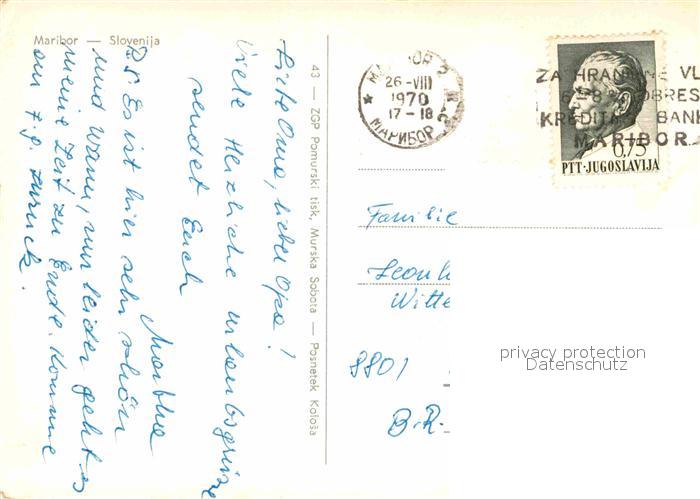 Maribor — Slovenija
Liebe Oma, lieber Opa!
Viele Herzliche Urlaubsgrüsse
sendet Euch
Martha
P.S. Es ist hier sehr schön
und warm, nur leider geht es
meine Zeit zu Ende. Komme
am 7.9. zurück.
43 — ZGP Pomurski tisk, Murska Sobota — Posnetek Kološa
MARIBOR 2
26-VIII
1970
17-18
МАРИБОР 2
ZA HRANILNE VL
OBRES
KREDITNA BANK
MARIBOR
0,75
PTT·JUGOSLAVIJA
Familie
Leonh
Witte
8801
B.R.
privacy protection
Datenschutz